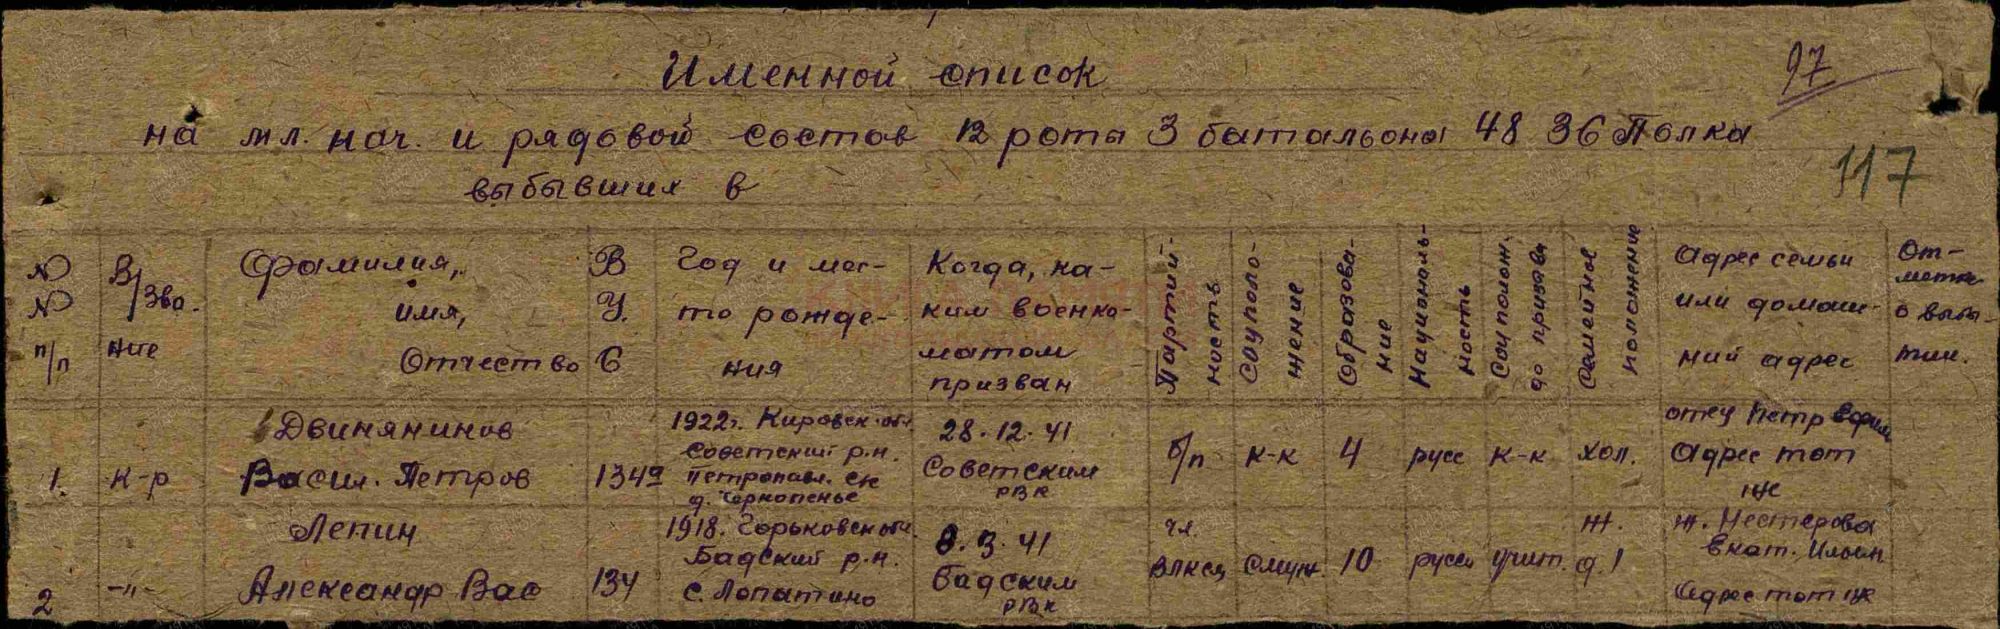 97
Именной список
на мл. нач. и рядовой состав 12 роты 3 батальона 48 36 Полка
117
выбывших в
№ № п/п
В/Зва-ние
Фамилия, имя, Отчество
В У С
Год и мес-то рожде-ния
Когда, ка-ким военко-матом призван
Партий-ность
Соцполо-жение
Образова-ние
Националь-ность
Соцполож. до призыва
Семейное положение
Адрес семьи или домаш-ний адрес
От-метка о выбы-тии.
1. к-р
Двинянинов
Васил. Петров
134
1922г. Кировск. обл.
Советский р-н.
Петропавл. с/с
28.12.41
Советским
РВК
б/п к-к 4 русс к-к хол.
отец Петр
Адрес тот
же
2 -"-
Лепин
Александр Вас
134
1918. Горьковск.
р-н.
с. Лопатино
41
РВК
чл.
ВЛКСМ служ. 10 русск учит.
ж.
д. 1
ж. Нестерова
Екат. Ильин
Адрес тот же